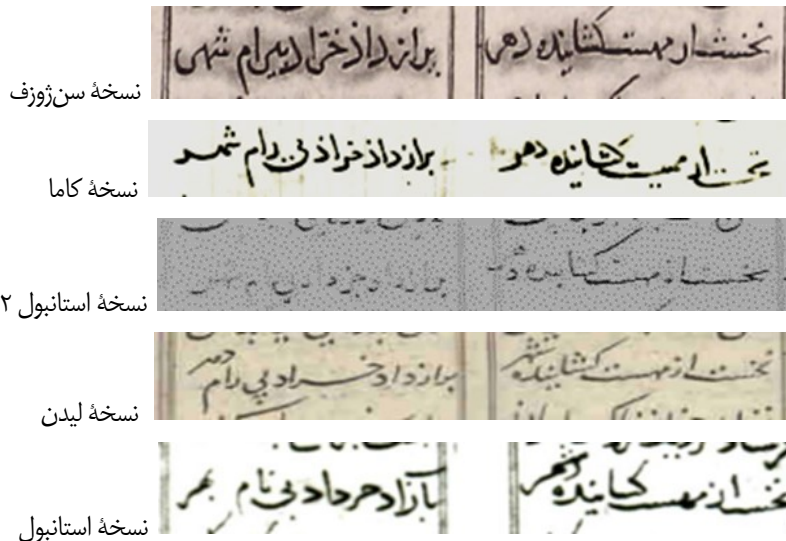 نخستش از مهست کشاینده دهر برازداذ خرّاد بیرام شهر
نسخهٔ سن‌ژوزف
نخست از مهست کشاینده دهر برازداد خراد بی رام شهر
نسخهٔ کاما
نخست از مهست کشاینده
نسخهٔ استانبول ۲
نخست از مهست کشاینده شهر برازداد خراد پی رام دهر
نسخهٔ لیدن
نخست از مهست کشاینده شهر بآزاد خرداد بی نام بهر
نسخهٔ استانبول